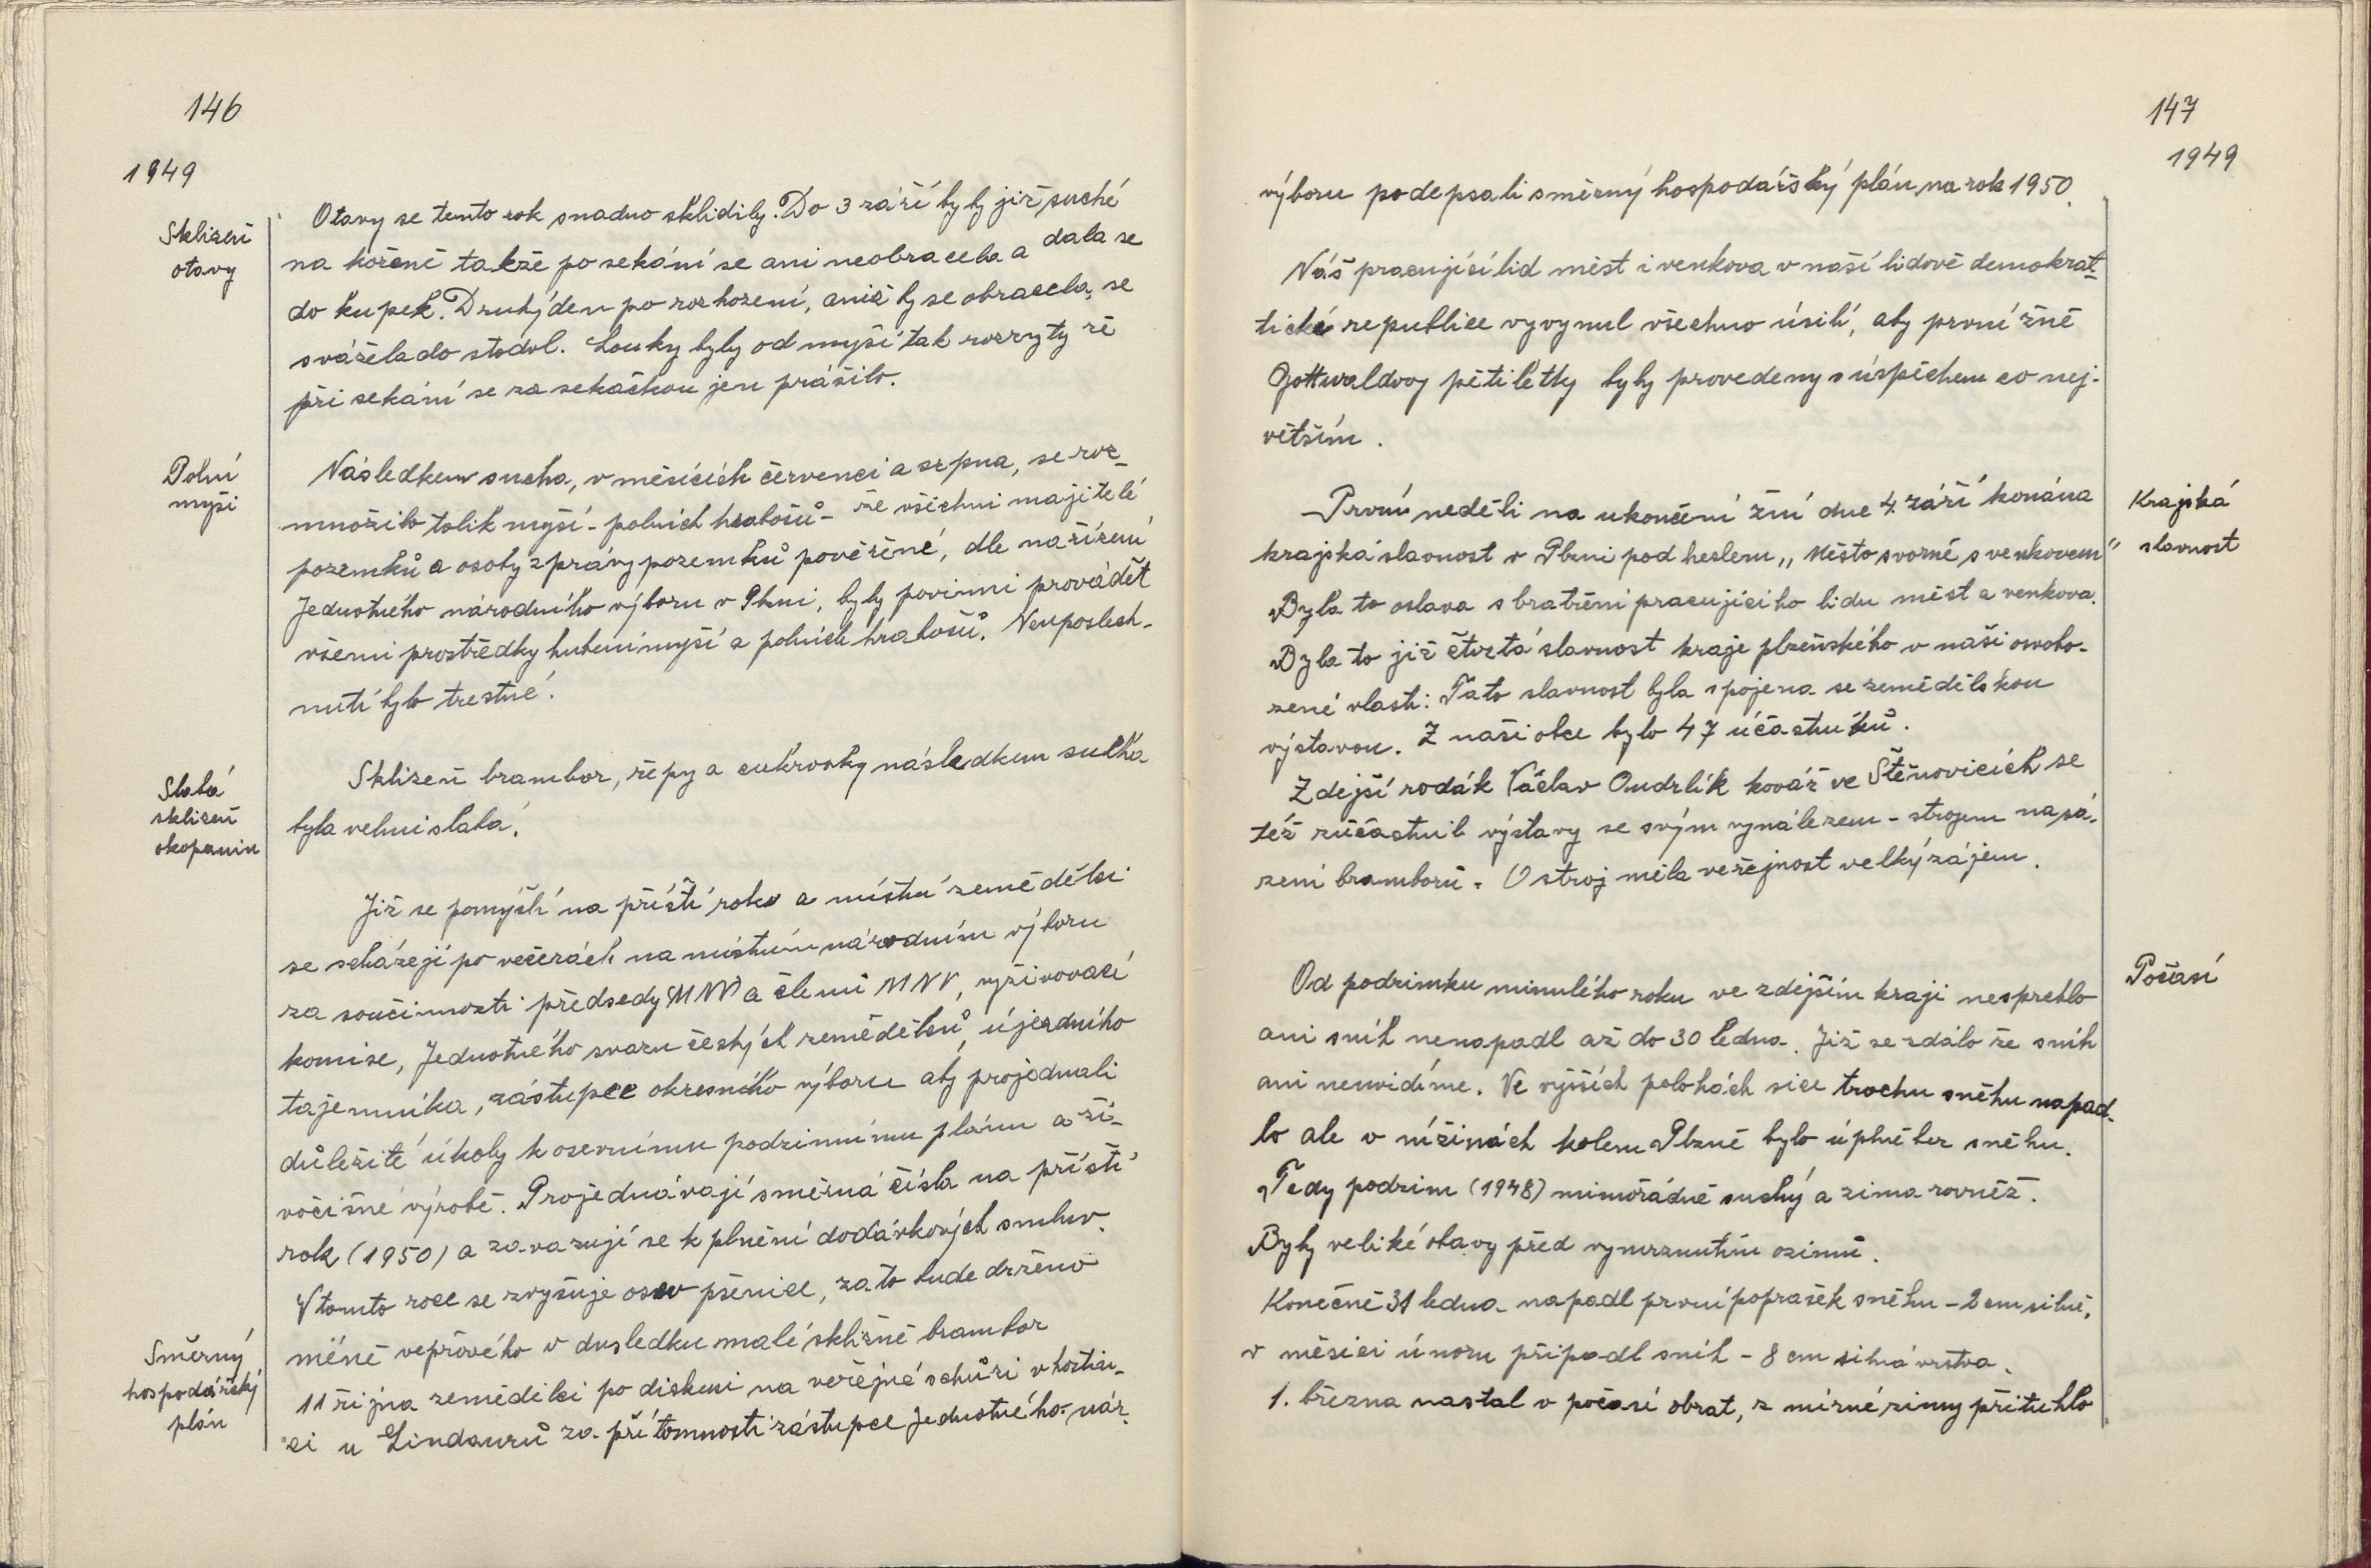 146
1949
Sklizeň
otavy
Otavy se tento rok snadno sklidily. Do 3 září byly již suché
na kořeně takže po sekání se ani neobracela a dala se
do kupek. Druhý den po rozhození, aniž by se obracela, se
svážela do stodol. Louky byly od myší tak rozryty že
při sekání se za sekačkou jen prášilo.
Polní
myši
Následkem sucha, v měsících červenci a srpna, se roz-
množilo tolik myší - polních hrabošů - že všichni majitelé
pozemků a osoby zprávy pozemků pověřené, dle nařízení
Jednotného národního výboru v Plzni, byly povinni provádět
všemi prostředky hubení myší a polních hrabošů. Neuposlech-
nutí bylo trestné.
Slabá
sklizeň
okopanin
Sklizeň brambor, řepy a cukrovky následkem sucha
byla velmi slabá.
Již se pomýšlí na příští roky a místní zemědělci
se scházejí po večerách na místním národním výboru
za součinnosti předsedy MNV a členů MNV, vyživovací
komise, Jednotného svazu českých zemědělců, újezdního
tajemníka, zástupce okresního výboru aby projednali
důležité úkoly k osevnímu podzimnímu plánu a ži-
vočišné výrobě. Projednávají směrná čísla na příští
rok (1950) a zavazují se k plnění dodávkových smluv.
V tomto roce se zvyšuje osev pšenice, za to bude drženo
méně vepřového v dusledku malé sklizně brambor
Směrný
hospodářský
plán
11 října zemědělci po diskusi na veřejné schůzi v hostin-
ci u Lindaurů za přítomnosti zástupce Jednotného nár.
147
1949
výboru podepsali směrný hospodářský plán na rok 1950.
Náš pracující lid měst i venkova v naší lidově demokrat-
tické republice vyvynul všechno úsilí, aby první žně
Gottwaldovy pětiletky byly provedeny s úspěchem co nej-
větším.
Krajská
slavnost
První neděli na ukončení žní dne 4. září konána
krajská slavnost v Plzni pod heslem „Město svorně s venkovem"
Byla to oslava sbratření pracujícího lidu měst a venkova.
Byla to již čtvrtá slavnost kraje plzeňského v naši osvobo-
zené vlasti: Tato slavnost byla spojena se zemědělskou
výstavou. Z naši obce bylo 47 účastníků.
Zdejší rodák Václav Oudrlík kovář ve Štěnovicích se
též zúčastnil výstavy se svým vynálezem - strojem na sá-
zení bramborů. O stroj měla veřejnost velký zájem.
Počasí
Od podzimku minulého roku ve zdejším kraji nesprchlo
ani sníh nenapadl až do 30 ledna. Již se zdálo že sníh
ani neuvidíme. Ve vyšších polohách sice trochu sněhu napad-
lo ale v nížinách kolem Plzně bylo úplně bez sněhu.
Tedy podzim (1948) mimořádně suchý a zima rovněž.
Byly veliké obavy před vymrznutím ozimů.
Konečně 31 ledna napadl první poprašek sněhu - 2 cm silně,
v měsíci únoru připadl sníh - 8 cm silná vrstva.
1. března nastal v počasí obrat, z mírné zimy přituhlo